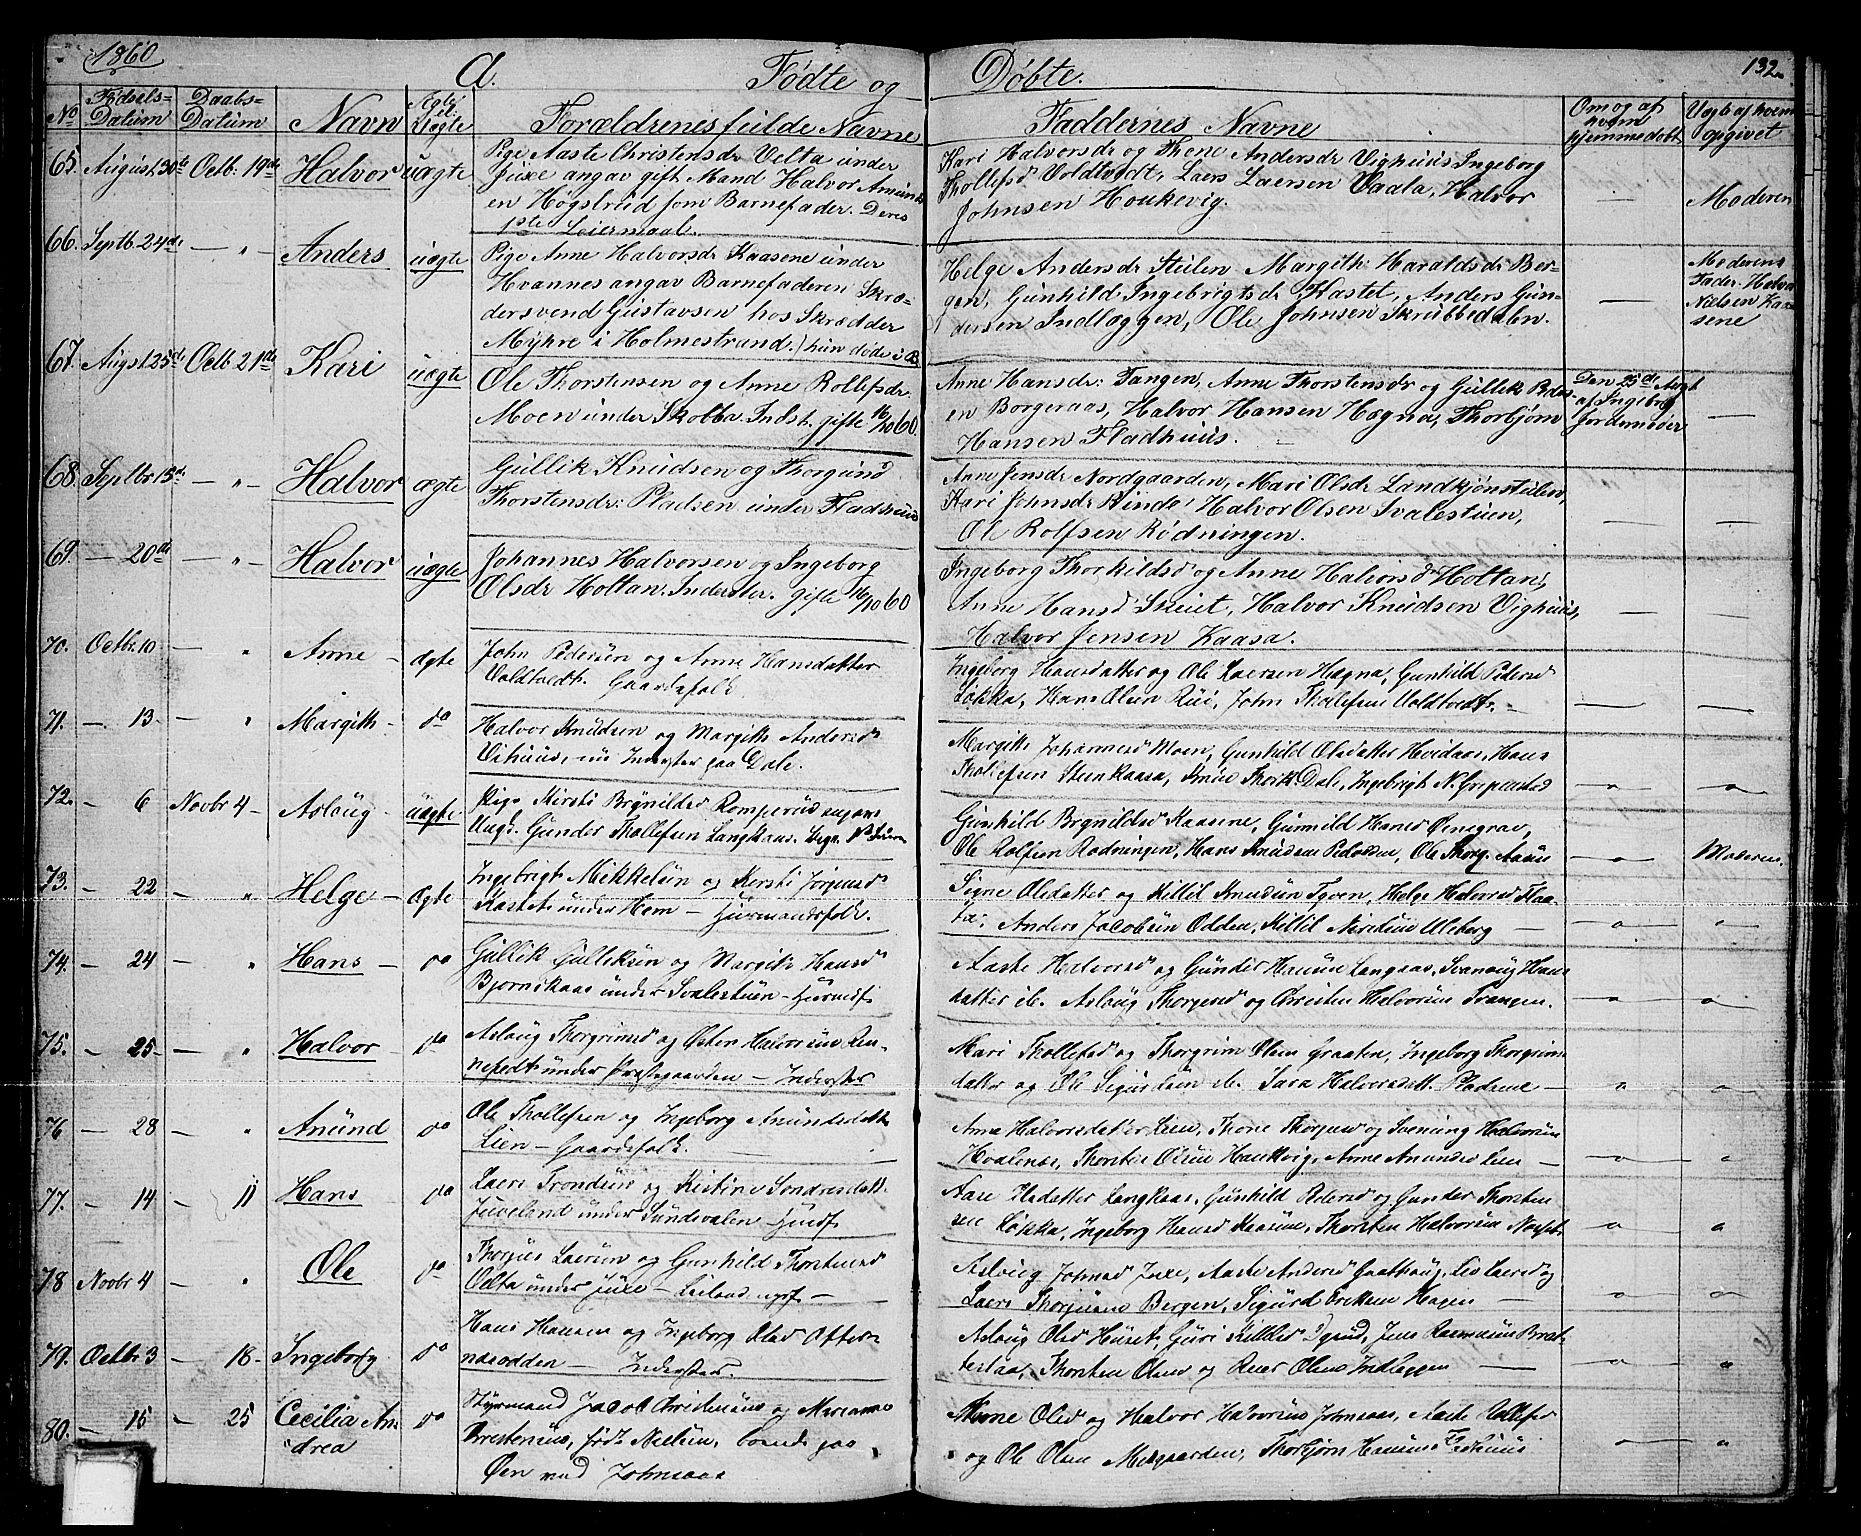 1860
132
A. Fødte og Døbte.
No Fødsels-Datum Daabs-Datum Navn Ægte el. Uægte Forældrenes fulde Navne Faddernes Navne Om og af hvem hjemmedøbt Uægt af hvem opgivet
65. August 30te Octb. 19de Halvor uægte
Pige Aaste Christensdr Velta under
Juxe angav gift Mand Halvor Amund-
en Høgstrud som Barnefader. Deres
1ste Leiermaal.
Kari Halvorsdr og Thone Andersdr Vighuus Ingeborg
Thollefsd Voldtvedt, Laers Laersen Vaala, Halvor
Johnsen Houkevig.
— Moderen
66. Septb. 24de — " — Anders uægte
Pige Anne Halvorsdr Kaasene under
Hvannes angav Barnefaderen Skræ-
dersvend Gustavsen hos Skrædder
Myhre i Holmestrand.
Helge Andersdr Steilen Margith Haraldsdr Ber-
gen, Gunhild Ingebrigtsdr Kastet, Anders Gun-
dersen Indlæggen, Ole Johnsen Skrubbedalen.
— Moderens Fader Halvor Nielsen Kaasene
67. Augst. 25de Octb. 21de Kari uægte
Ole Thorstensen og Anne Rollefsdr
Moen under Skolba. Indst. gifte 16/10 60.
Anne Hansdr: Tangen, Anne Thorstensdr og Gullik Peders-
en Borgeraas, Halvor Hansen Hægna, Thorbjørn
Hansen Fladhuus.
Den 25de Augst af Ingeborg Jordemoder —
68. Septbr 15de — " — Halvor ægte
Gullik Knudsen og Thorgund
Thorstensdr: Pladsen under Fladhuus
Anne Jensdr Nordgaarden, Mari Olsdr Landkjønsteilen,
Kari Johnsdr Rinde, Halvor Olsen Svalestuen,
Ole Rolfsen Rødningen.
— —
69. — 20de — " — Halvor uægte
Johannes Halvorsen og Ingeborg
Olsdr Holtan. Inderster. gifte 16/10 60
Ingeborg Thorkildsd og Anne Halvorsd Holtan,
Anne Hansd Skuet, Halvor Knudsen Vighuus,
Halvor Jensen Kaasa.
— —
70. Octbr. 10 — " Anne — ægte
John Pedersen og Anne Hansdatter
Voldtvedt. Gaardsfolk.
Ingeborg Hansdatter og Ole Laersen Hægna, Gunhild Pedersd
Løkka, Hans Olsen Rui, John Thollefsen Voldtvedt. —
— —
71. — 13. — " Margith — do
Halvor Knudsen og Margith Andersd
Vihuus, nu Inderster paa Dale.
Margith Johannesd Moen, Gunhild Olsdatter Hvidaas, Hans
Thollefsen Steenkaasa, Knud Thork. Dale, Ingebrigt N. Gripenstad
72. — 6 Novbr 4 — Aslaug — uægte
Pige Kirsti Brynildsd Romperud angav
Ungk. Gunder Thollefsen Langkaas.
Gunhild Brynildsd Kaasene, Gunnild Hansd Ornegrav,
Ole Rolfsen Rødningen, Hans Knudsen Pedersen, Ole Thorg. Aasen
Moderen.
73. — 22 " Helge — ægte
Ingebrigt Mikkelsen og Kirsti Jørgensd
Kastet under Hem — Huusmandsfolk.
Signe Olsdatter og Killil Knudsen Tyven, Helge Halvorsd Flaa-
ta, Anders Jacobsen Odden, Killil Uleberg —
74. — 24 " Hans — do
Gullik Gulliksen og Margith Hansd
Bjørnskaas under Svalestuen — Huusmf
Aaste Halvorsd og Gunder Hansen Langaas, Svanaug Hans
datter ib. Aslaug Thorgersd og Christen Halvorsen Tvangen.
75. — 25 — " Halvor do
Aslaug Thorgrimsd og Østen Halvorsen Ren-
nefedt under Præstegaarden — Inderster
Mari Thollefsd og Thorgrim Olsen Graaten, Ingeborg Thorgrims
datter og Ole Sigurdsen ib. Sara Halvorsdatt. Pladsene —
76 — 28 — " Anund do
Ole Thollefsen og Ingeborg Anundsdatter
Lien — Gaardsfolk.
Anne Halvorsdatter Lien, Thone Thorjusd og Svenung Halvorsen
Hvalenes, Thorsten Olsen Haukvig, Anne Anundsd Lien —
77. — 14 — 11 Hans do
Laers Trondsen og Kistine Sondresdatt.
Juveland under Sundsvalen — Huusf
Aase Hsdatter Langkaas, Gunhild Pedersd og Gunder Thorsten
sen Løkka, Ingeborg Hansd Kaasene, Thorsten Halvorsen
78 Novbr 4 — " Ole do
Thorjus Laersen og Gunhild Thorstensd
Velta under Juxe — Leilænd. —
Aslaug Johnsd Juxe, Aaste Andersd Liv Laersd og
Laers Thorjusen Bergen, Sigurd Eriksen Hagen —
79. Octbr 3 — 18 — Ingeborg do
Hans Hansen og Ingeborg Olsd Ofte-
næsodden — Inderster.
Aslaug Olsd Huset, Guri Killilsd Jens Rasmusen Brat-
Thorsten Olsen og Reier Olsen Indlæggen —
80. — 15 — 25 Cecilia An- drea do
Styrmand Jacob Christensen og Marianne
Brestensen, født Nielsen, boende paa
Øen ved Johnsaas
Anne Olsd og Halvor Halvorsen Johnsaas, Aaste Rollefsd
og Ole Olsen Midgaarden, Thorbjørn Hansen Fladhuus